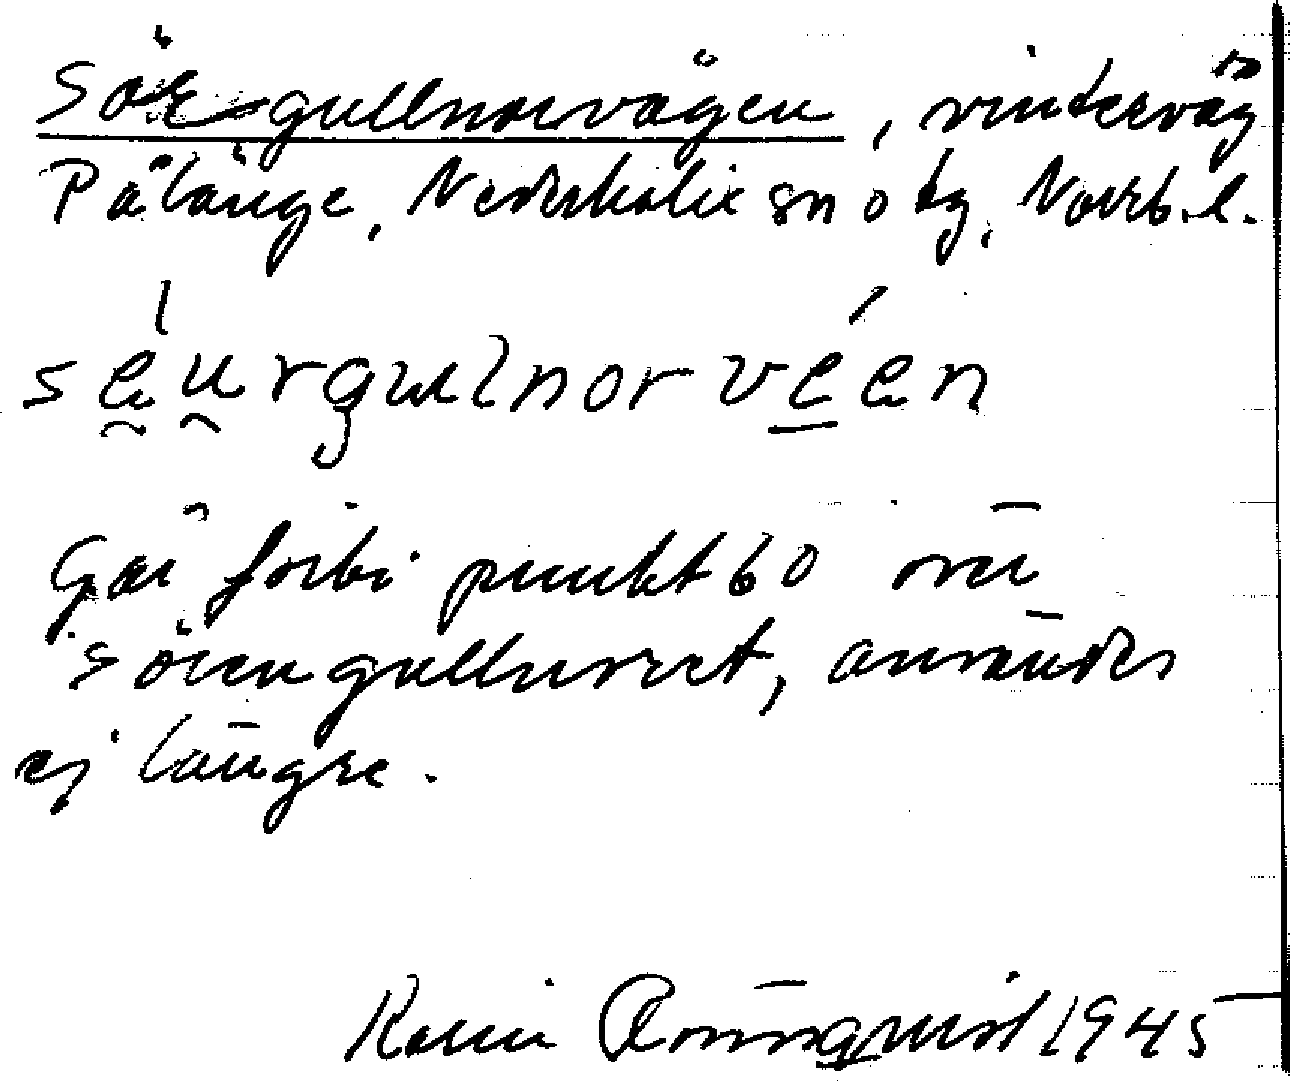 Sörgullnorvägen, vinterväg
Pålänge, Nederkalix sn o tg, Norrb. l.
séu̯rgulnorvéen
Går förbi punkt 60 över
Sörengullnoret, användes
ej längre.
Karin Rönnqvist 1945